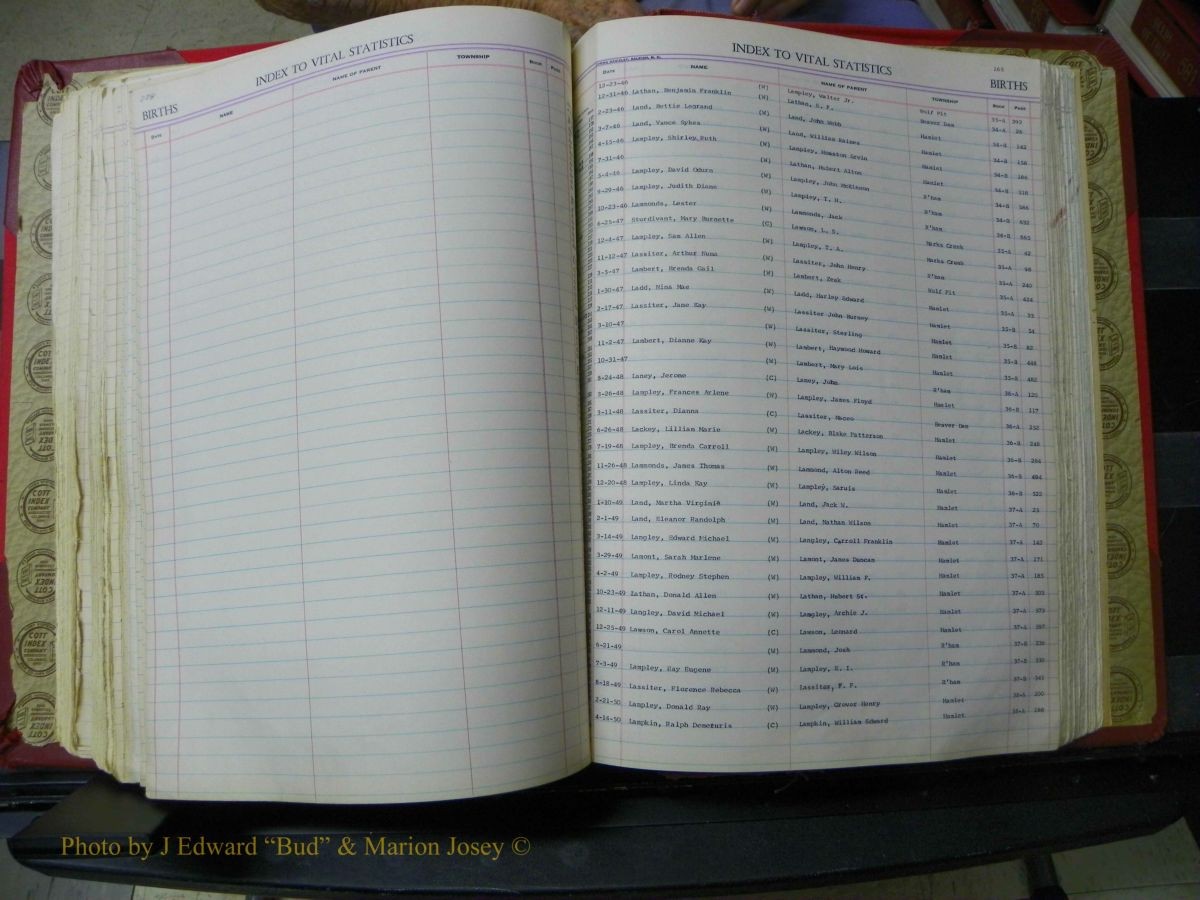 224
INDEX TO VITAL STATISTICS
BIRTHS
DATE NAME NAME OF PARENT TOWNSHIP BOOK PAGE
INDEX TO VITAL STATISTICS
BIRTHS
DATE NAME NAME OF PARENT TOWNSHIP BOOK PAGE
12-23-46 (W) Lampley, Walter Jr. Wolf Pit 33-A 392
12-31-46 Lathan, Benjamin Franklin (W) Lathan, S. F. Beaver Dam 34-A 26
2-23-46 Land, Bettie Legrand Land, John Webb Hamlet 34-B 142
3-7-46 Land, Vance Sykes (W) Land, William Raines Hamlet 34-B 158
4-15-46 Lampley, Shirley Ruth (W) Lampley, Houston Ervin Hamlet 34-B
7-31-46 (W) Lathan, Hubert Alton Hamlet 34-B 318
5-4-46 Lampley, David Odurn (W) Lampley, John McKinnon R'ham
9-29-46 Lampley, Judith Diane (W) Lampley, T. H. R'ham 34-B
10-23-46 Lammonds, Lester (W) Lammonds, Jack
6-25-47 Sturdivant, Mary Burnette (C) Lawson, L. S. Marks Creek 35-A 42
12-4-47 Lampley, Sam Allen (W) Lampley, T. A. Marks Creek 35-A
11-12-47 Lassiter, Arthur Numa (W) Lassiter, John Henry R'ham 240
3-5-47 Lambert, Brenda Gail (W) Lambert, Zeak Wolf Pit 35-A 424
1-30-47 Ladd, Nina Mae (W) Ladd, Harley Edward Hamlet 35-A
2-17-47 Lassiter, Jane Kay (W) Lassiter John Burney Hamlet 35-B 54
3-10-47 (W) Lassiter, Sterling Hamlet 35-B 82
11-2-47 Lambert, Dianne Kay (W) Lambert, Haywood Howard Hamlet 35-B 448
10-31-47 (W) Lambert, Mary Lois Hamlet 35-B 482
8-24-48 Laney, Jerome (C) Laney, John R'ham 36-A 120
3-26-48 Lampley, Frances Arlene (W) Lampley, James Floyd Hamlet 36-B 117
3-11-48 Lassiter, Dianna (C) Lassiter, Maceo Beaver Dam 36-A 232
6-26-48 Lackey, Lillian Marie (W) Lackey, Blake Patterson Hamlet 36-B 248
7-19-48 Lampley, Brenda Carroll (W) Lampley, Wiley Wilson Hamlet 36-B 284
11-26-48 Lammonds, James Thomas (W) Lammond, Alton Reed Hamlet 36-B 494
12-20-48 Lampley, Linda Kay (W) Lampley, Sarvis Hamlet 36-B 522
1-10-49 Land, Martha Virginia (W) Land, Jack W. Hamlet 37-A 23
2-1-49 Land, Eleanor Randolph (W) Land, Nathan Wilson Hamlet 37-A 70
3-14-49 Langley, Edward Michael (W) Langley, Carroll Franklin Hamlet 37-A 142
3-29-49 Lamont, Sarah Marlene (W) Lamont, James Duncan Hamlet 37-A 171
4-2-49 Lampley, Rodney Stephen (W) Lampley, William F. Hamlet 37-A 185
10-23-49 Lathan, Donald Allen (W) Lathan, Hubert St. Hamlet 37-A
12-11-49 Langley, David Michael (W) Langley, Archie J. Hamlet 37-A
12-25-49 Lawson, Carol Annette (C) Lawson, Leonard Hamlet 37-A
6-21-49 (W) Lammond, Josh R'ham 37-B
7-3-49 Lampley, Ray Eugene (W) Lampley, E. L. R'ham 37-B
8-18-49 Lassiter, Florence Rebecca (W) Lassiter, F. F. R'ham 37-B
2-21-50 Lampley, Donald Ray (W) Lampley, Grover Henry Hamlet 38-A 200
4-14-50 Lampkin, Ralph Demeturis (C) Lampkin, William Edward Hamlet 38-A
COTT INDEX COMPANY
Photo by J Edward “Bud” & Marion Josey ©